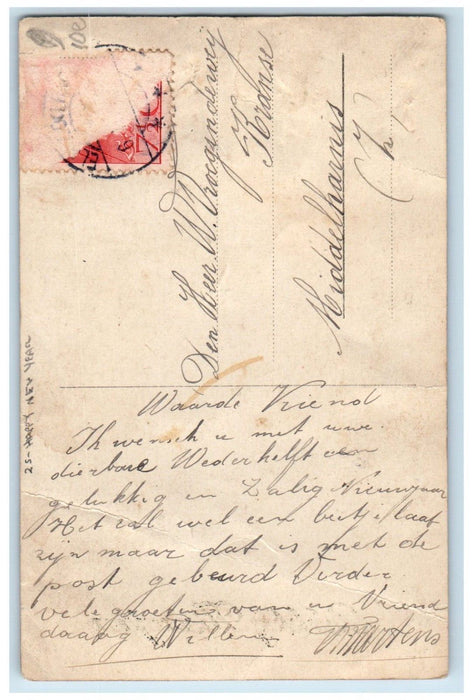 Den Heer W. Vroegindewey
Kranse
Middelharnis
(Z
Waarde Vriend
Ik wensch u met uwe
dierbare Wederhelft een
gelukkig en Zalig Nieuwjaar
Het zal wel een beetje laat
zijn maar dat is met de
post gebeurd Verder
vele groeten van u Vriend
daaag Willem
25-HAPPY NEW YEAR